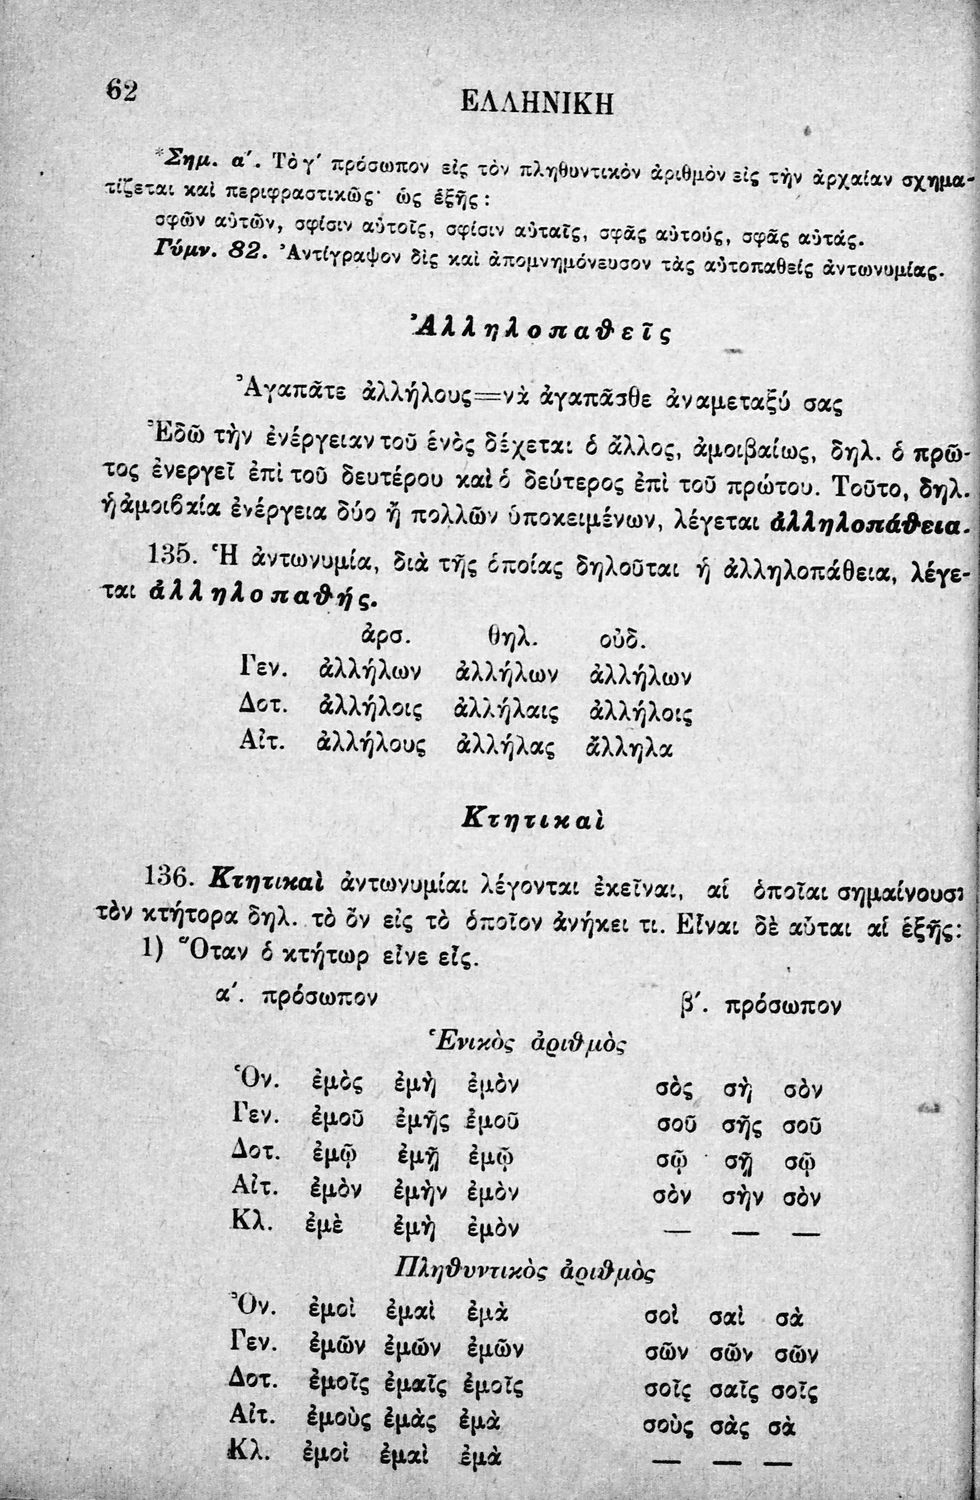 62
ΕΛΛΗΝΙΚΗ
*Σημ. α΄. Τὸ γ΄ πρόσωπον εἰς τὸν πληθυντικὸν ἀριθμὸν εἰς τὴν ἀρχαίαν σχημα-
τίζεται καὶ περιφραστικῶς· ὡς ἑξῆς:
σφῶν αὐτῶν, σφίσιν αὐτοῖς, σφίσιν αὐταῖς, σφᾶς αὐτούς, σφᾶς αὐτάς.
Γύμν. 82. Ἀντίγραψον δὶς καὶ ἀπομνημόνευσον τὰς αὐτοπαθεῖς ἀντωνυμίας.
Ἀλληλοπαθεῖς
Ἀγαπᾶτε ἀλλήλους=νὰ ἀγαπᾶσθε ἀναμεταξύ σας
Ἐδῶ τὴν ἐνέργειαν τοῦ ἑνὸς δέχεται ὁ ἄλλος, ἀμοιβαίως, δηλ. ὁ πρῶ-
τος ἐνεργεῖ ἐπὶ τοῦ δευτέρου καὶ ὁ δεύτερος ἐπὶ τοῦ πρώτου. Τοῦτο, δηλ.
ἡ ἀμοιβαία ἐνέργεια δύο ἢ πολλῶν ὑποκειμένων, λέγεται ἀλληλοπάθεια.
135. Ἡ ἀντωνυμία, διὰ τῆς ὁποίας δηλοῦται ἡ ἀλληλοπάθεια, λέγε-
ται ἀλληλοπαθής.
ἀρσ. θηλ. οὐδ.
Γεν. ἀλλήλων ἀλλήλων ἀλλήλων
Δοτ. ἀλλήλοις ἀλλήλαις ἀλλήλοις
Αἰτ. ἀλλήλους ἀλλήλας ἄλληλα
Κτητικαὶ
136. Κτητικαὶ ἀντωνυμίαι λέγονται ἐκεῖναι, αἱ ὁποῖαι σημαίνουσι
τὸν κτήτορα δηλ. τὸ ὂν εἰς τὸ ὁποῖον ἀνήκει τι. Εἶναι δὲ αὗται αἱ ἑξῆς:
1) Ὅταν ὁ κτήτωρ εἶνε εἷς.
α΄. πρόσωπον β΄. πρόσωπον
Ἑνικὸς ἀριθμὸς
Ὀν. ἐμὸς ἐμὴ ἐμὸν σὸς σὴ σὸν
Γεν. ἐμοῦ ἐμῆς ἐμοῦ σοῦ σῆς σοῦ
Δοτ. ἐμῷ ἐμῇ ἐμῷ σῷ σῇ σῷ
Αἰτ. ἐμὸν ἐμὴν ἐμὸν σὸν σὴν σὸν
Κλ. ἐμὲ ἐμὴ ἐμὸν — — —
Πληθυντικὸς ἀριθμὸς
Ὀν. ἐμοὶ ἐμαὶ ἐμὰ σοὶ σαὶ σὰ
Γεν. ἐμῶν ἐμῶν ἐμῶν σῶν σῶν σῶν
Δοτ. ἐμοῖς ἐμαῖς ἐμοῖς σοῖς σαῖς σοῖς
Αἰτ. ἐμοὺς ἐμὰς ἐμὰ σοὺς σὰς σὰ
Κλ. ἐμοὶ ἐμαὶ ἐμὰ — — —